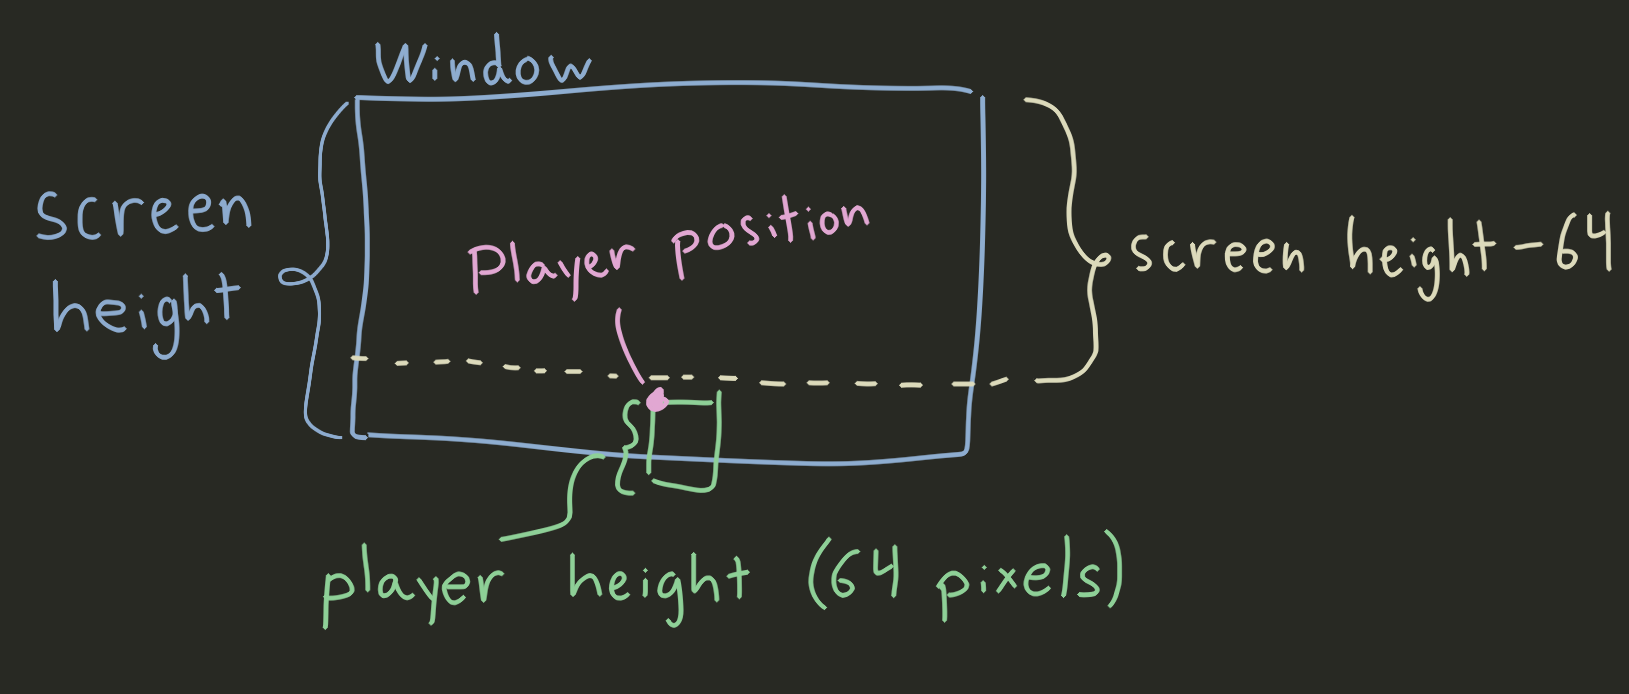 Window
screen
height
Player position
screen height - 64
player height (64 pixels)